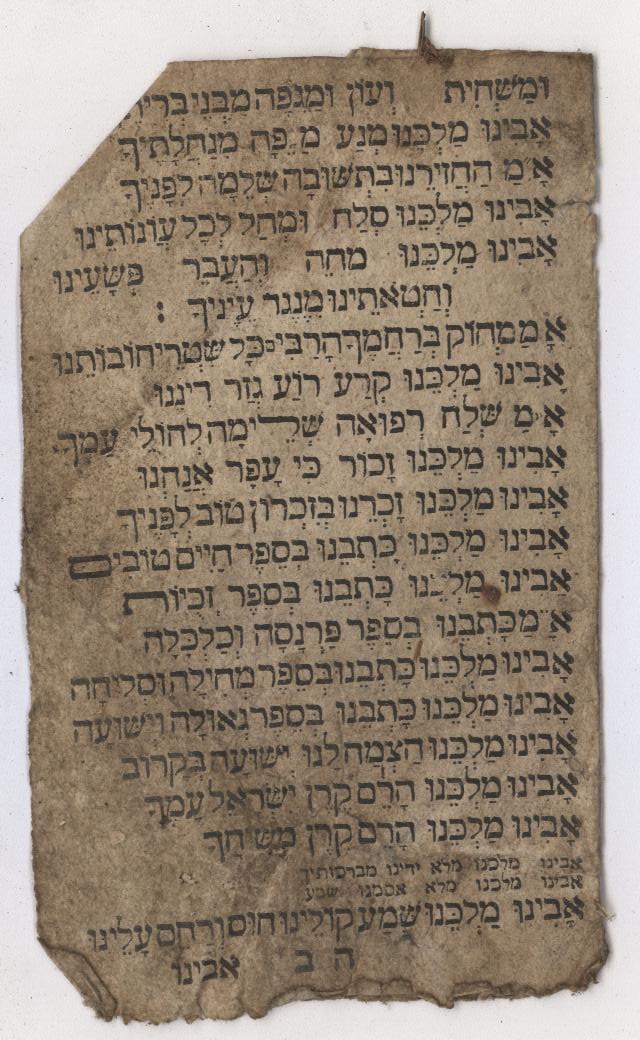 וּמַשְׁחִית וְעוֹן וּמַגֵּפָה מִבְּנֵי
אָבִינוּ מַלְכֵּנוּ מְנַע מַ פָה מִנַּחֲלָתֶיךָ
אָ״מַ הַחֲזִירֵנוּ בִּתְשׁוּבָה שְׁלֵמָה לְפָנֶיךָ
אָבִינוּ מַלְכֵּנוּ סְלַח וּמְחַל לְכָל עֲוֹנוֹתֵינוּ
אָבִינוּ מַלְכֵּנוּ מְחֵה וְהַעֲבֵר פְּשָׁעֵינוּ
וְחַטֹּאתֵינוּ מִנֶּגֶד עֵינֶיךָ :
אָ״מַ מְחוֹק בְּרַחֲמֶךָ הָרַבִּי׳ כָּל שִׁטְרֵי חוֹבוֹתֵנוּ
אָבִינוּ מַלְכֵּנוּ קְרַע רוֹעַ גְּזַר דִּינֵנוּ
אָ״מַ שְׁלַח רְפוּאָה שְׁלֵימָה לְחוֹלֵי עַמֶּךָ
אָבִינוּ מַלְכֵּנוּ זָכוֹר כִּי עָפָר אֲנָחְנוּ
אָבִינוּ מַלְכֵּנוּ זָכְרֵנוּ בְּזִכְרוֹן טוֹב לְפָנֶיךָ
אָבִינוּ מַלְכֵּנוּ כָּתְבֵנוּ בְּסֵפֶר חַיִּים טוֹבִים
אָבִינוּ מַלְכֵּנוּ כָּתְבֵנוּ בְּסֵפֶר זְכֻיּוֹת
אָ״מַ כָּתְבֵנוּ בְּסֵפֶר פַּרְנָסָה וְכַלְכָּלָה
אָבִינוּ מַלְכֵּנוּ כָּתְבֵנוּ בְּסֵפֶר מְחִילָה וּסְלִיחָה
אָבִינוּ מַלְכֵּנוּ כָּתְבֵנוּ בְּסֵפֶר גְּאוּלָה וִישׁוּעָה
אָבִינוּ מַלְכֵּנוּ הַצְמַח לָנוּ יְשׁוּעָה בְּקָרוֹב
אָבִינוּ מַלְכֵּנוּ הָרֵם קֶרֶן יִשְׂרָאֵל עַמֶּךָ
אָבִינוּ מַלְכֵּנוּ הָרֵם קֶרֶן מְשִׁיחֶךָ
אבינו מלכנו מלא ידינו מברכותיך
אבינו מלכנו מלא אסמנו שבע
אָבִינוּ מַלְכֵּנוּ שְׁמַע קוֹלֵינוּ חוּס וְרַחֵם עָלֵינוּ
ה ב אבינו